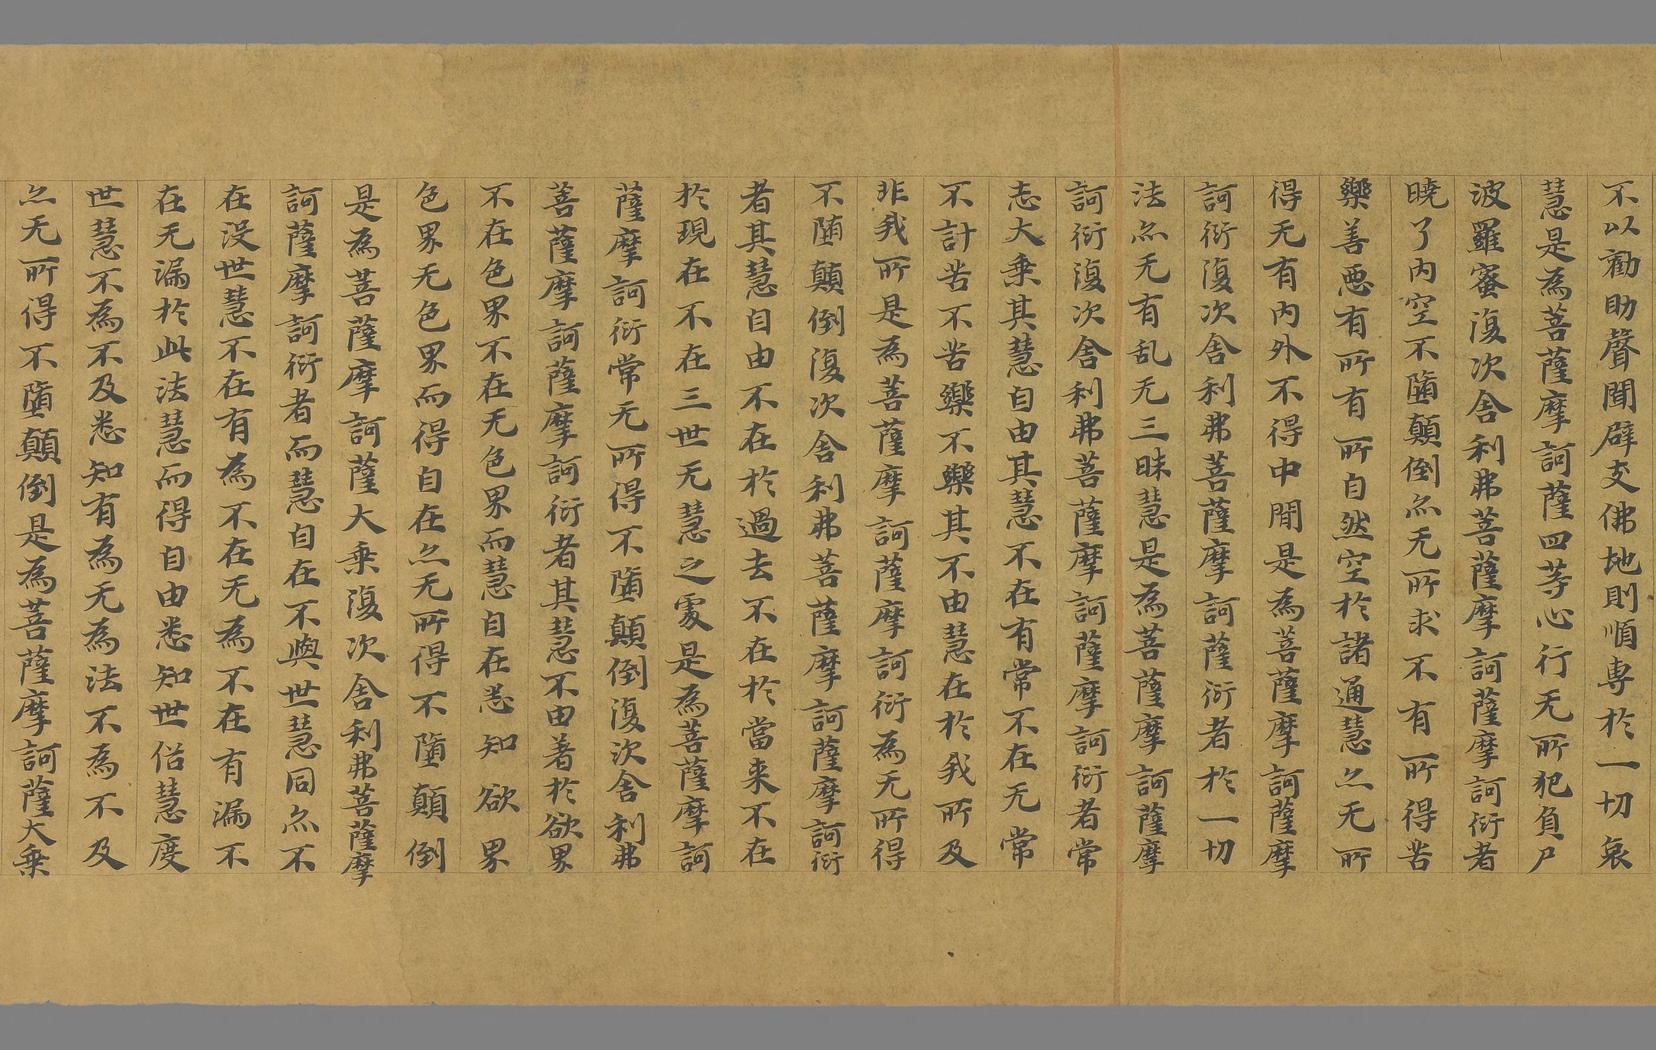 不以勸助聲聞辟支佛地則順專於一切哀
慧是為菩薩摩訶薩四等心行无所犯負尸
波羅蜜復次舍利弗菩薩摩訶薩摩訶衍者
曉了內空不墮顛倒亦无所求不有所得苦
樂善悪有所有所自然空於諸通慧亦无所
得无有內外不得中間是為菩薩摩訶薩摩
訶衍復次舍利弗菩薩摩訶薩衍者於一切
法亦无有乱无三昧慧是為菩薩摩訶薩摩
訶衍復次舍利弗菩薩摩訶薩摩訶衍者常
志大乗其慧自由其慧不在有常不在无常
不計苦不苦樂不樂其不由慧在於我所及
非我所是為菩薩摩訶薩摩訶衍為无所得
不墮顛倒復次舍利弗菩薩摩訶薩摩訶衍
者其慧自由不在於過去不在於當来不在
於現在不在三世无慧之處是為菩薩摩訶
薩摩訶衍常无所得不墮顛倒復次舍利弗
菩薩摩訶薩摩訶衍者其慧不由著於欲界
不在色界不在无色界而慧自在悉知欲界
色界无色界而得自在亦无所得不墮顛倒
是為菩薩摩訶薩大乗復次舍利弗菩薩摩
訶薩摩訶衍者而慧自在不與世慧同亦不
在没世慧不在有為不在无為不在有漏不
在无漏於此法慧而得自由悉知世俗慧度
世慧不為不及悉知有為无為法不為不及
亦无所得不墮顛倒是為菩薩摩訶薩大乗